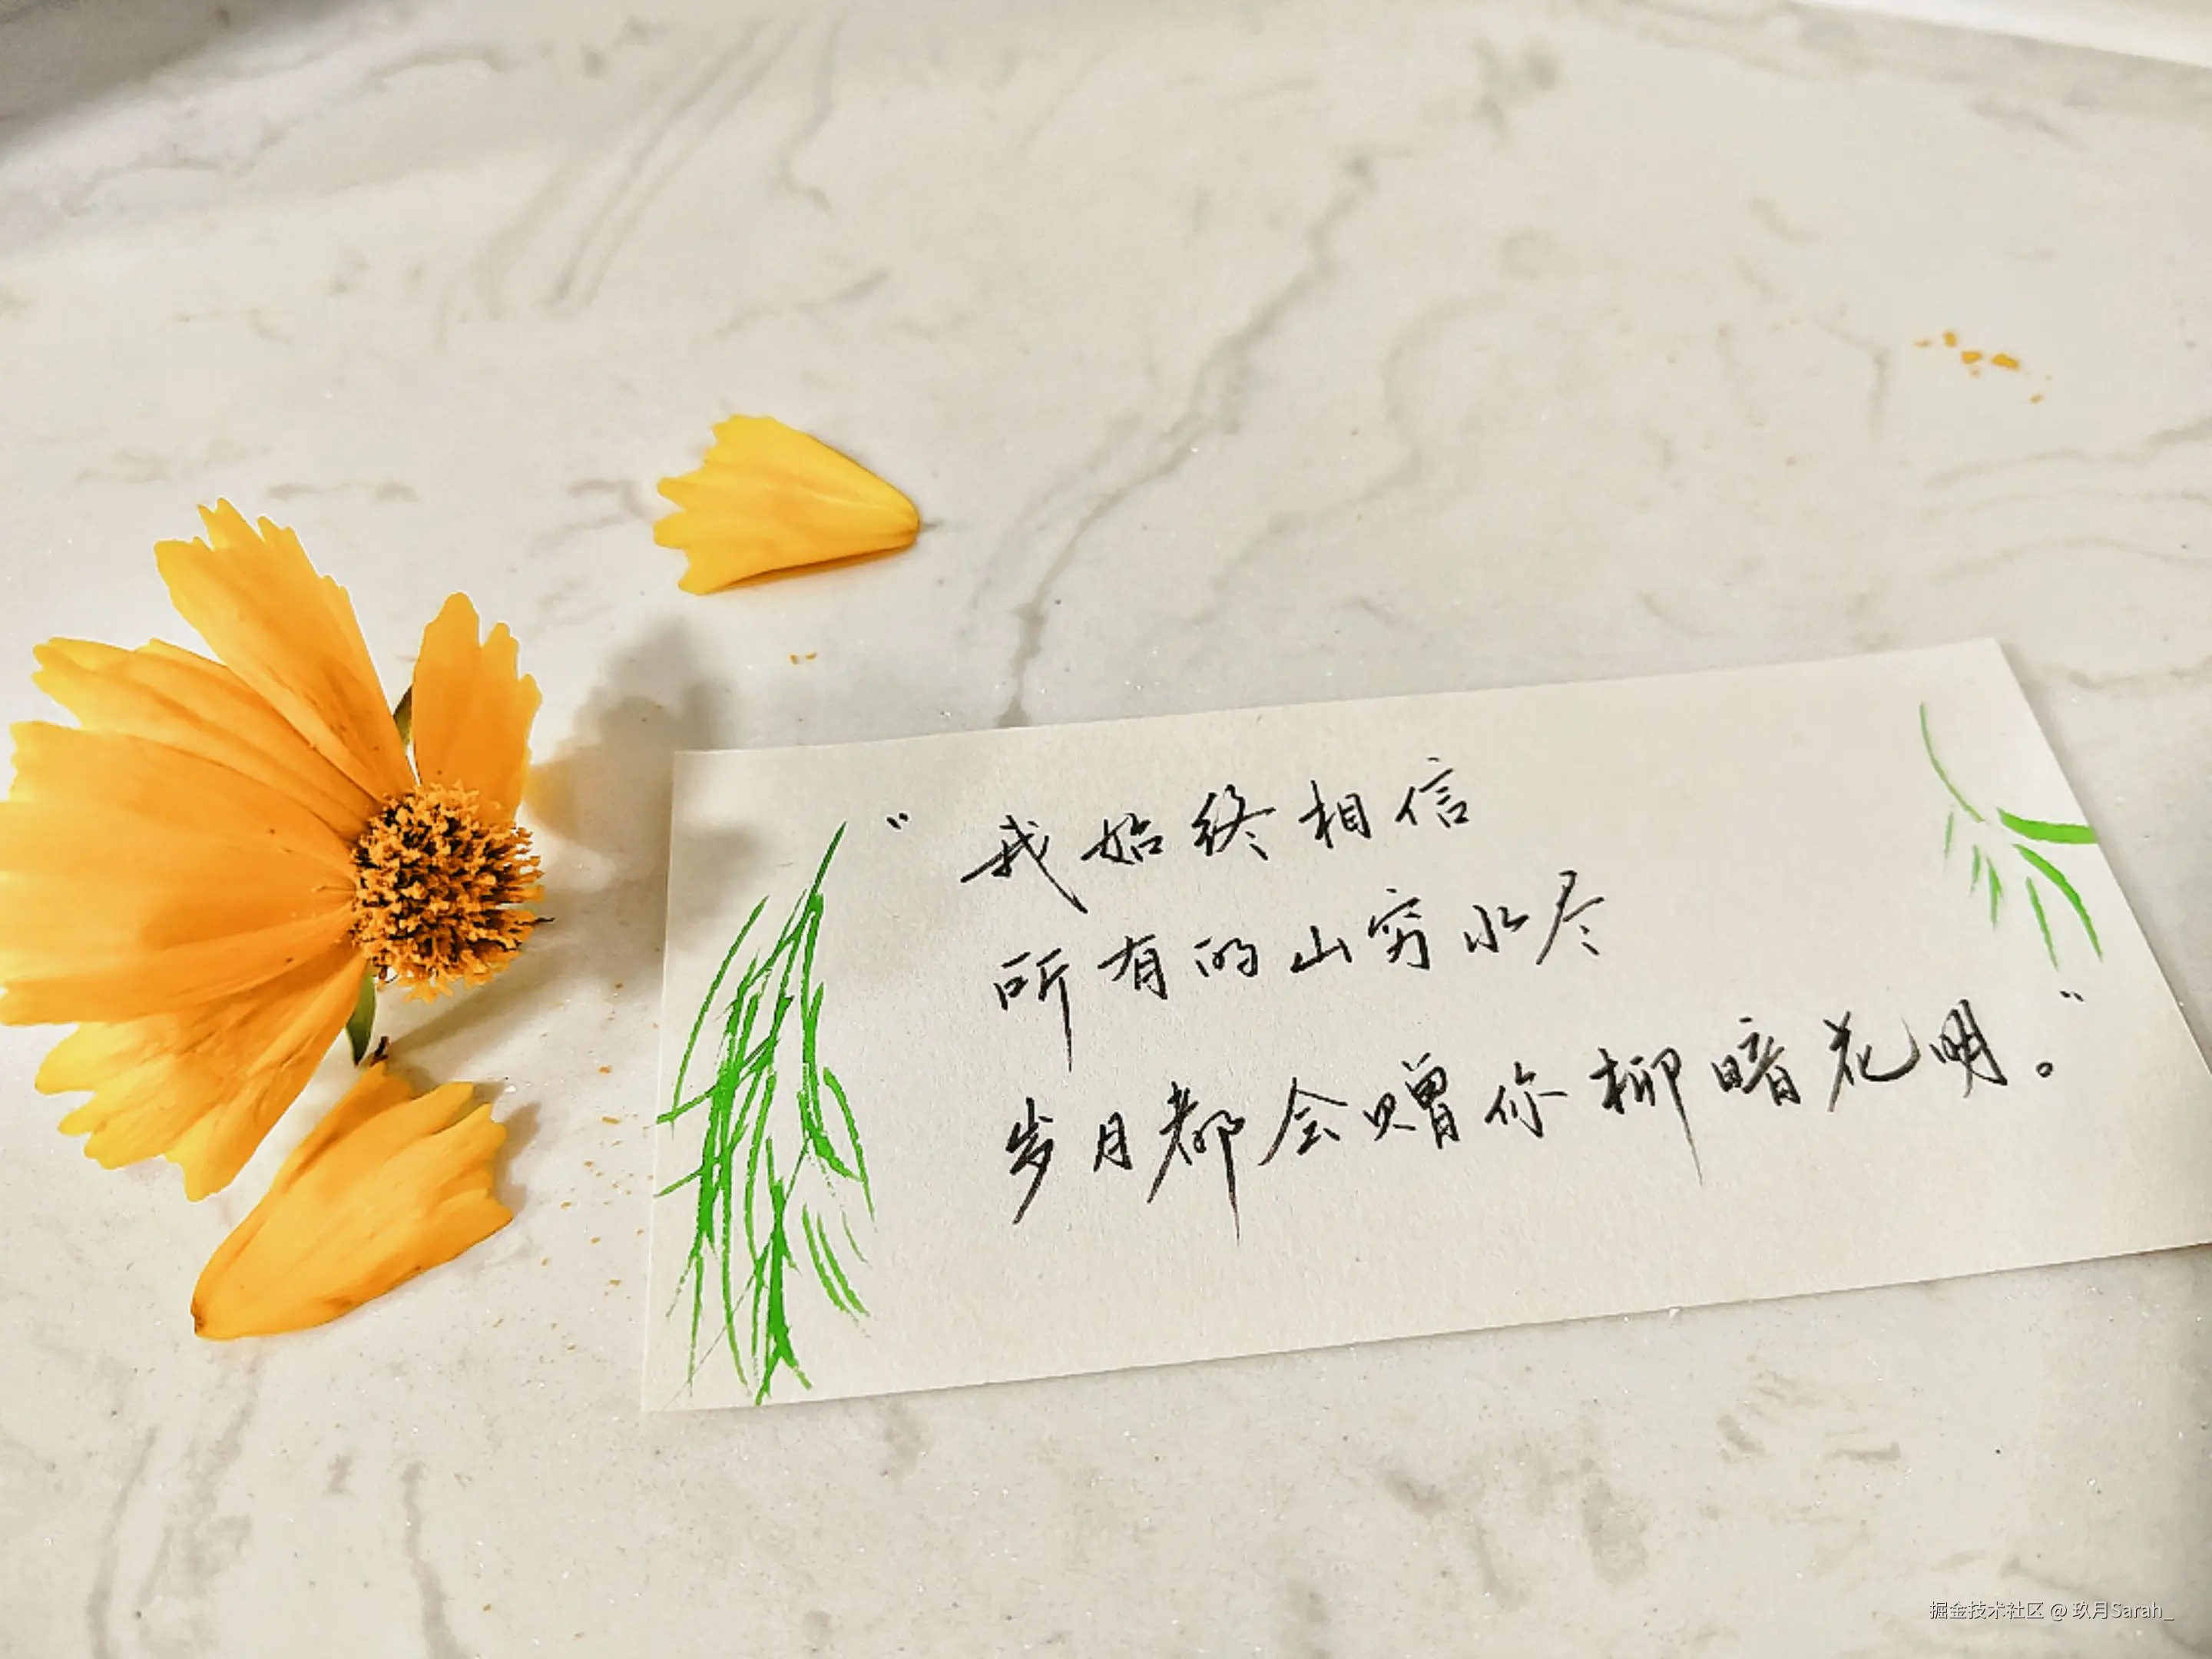 “我始终相信
所有的山穷水尽
岁月都会赠你柳暗花明。”
掘金技术社区 @ 玖月Sarah_